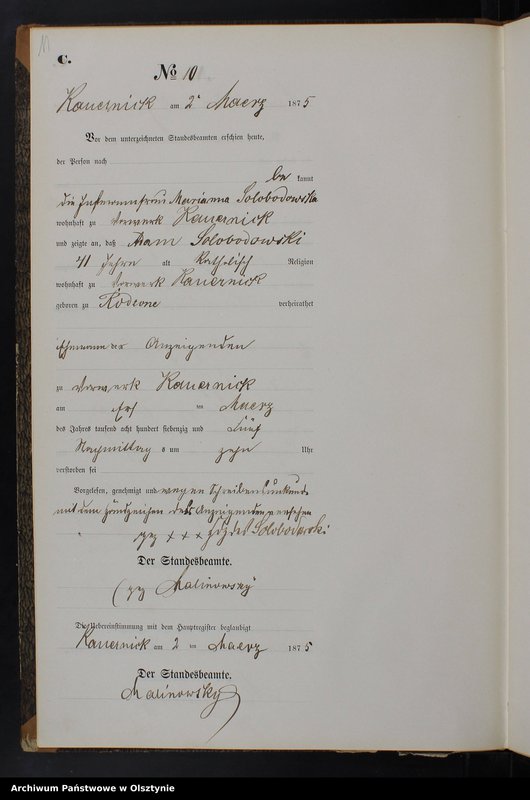 C.
No 10
Kauernick am 2 Maerz 1875
Vor dem unterzeichneten Standesbeamten erschien heute,
der Person nach
be kannt
die Marianna Solobodowska
wohnhaft zu Vorwerk Kauernick
und zeigte an, daß Adam Solobodowski
41 Jahre alt katholisch Religion
wohnhaft zu Vorwerk Kauernick
geboren zu verheirathet
Ehemann der Anzeigenden
zu Vorwerk Kauernick
am ten Maerz
des Jahrs tausend acht hundert siebenzig und fünf
Nachmittag s um zehn Uhr
verstorben sei
Vorgelesen, genehmigt und wegen Schreibensunkunde
mit dem Handzeichen des Anzeigenden versehen
gez + + + Solobodowski
Der Standesbeamte.
(gez Malinowsky
Die Uebereinstimmung mit dem Hauptregister beglaubigt
Kauernick am 2 ten Maerz 1875
Der Standesbeamte.
Malinowsky
Archiwum Państwowe w Olsztynie